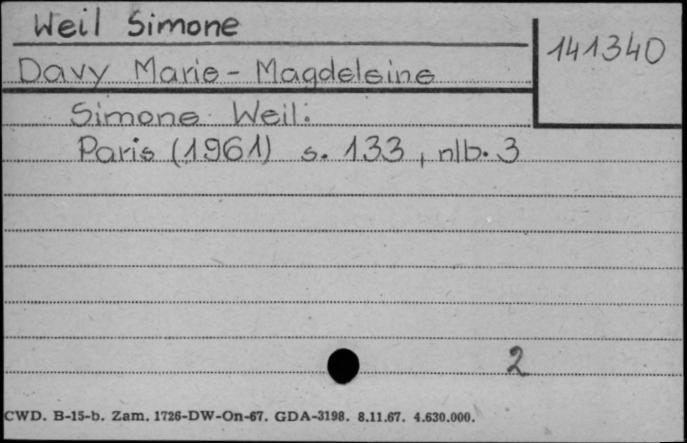 Weil Simone
141340
Davy Marie - Magdeleine
Simone Weil.
Paris (1961) s. 133, nlb. 3
2
CWD. B-15-b. Zam. 1726-DW-On-67. GDA-3198. 8.11.67. 4.630.000.